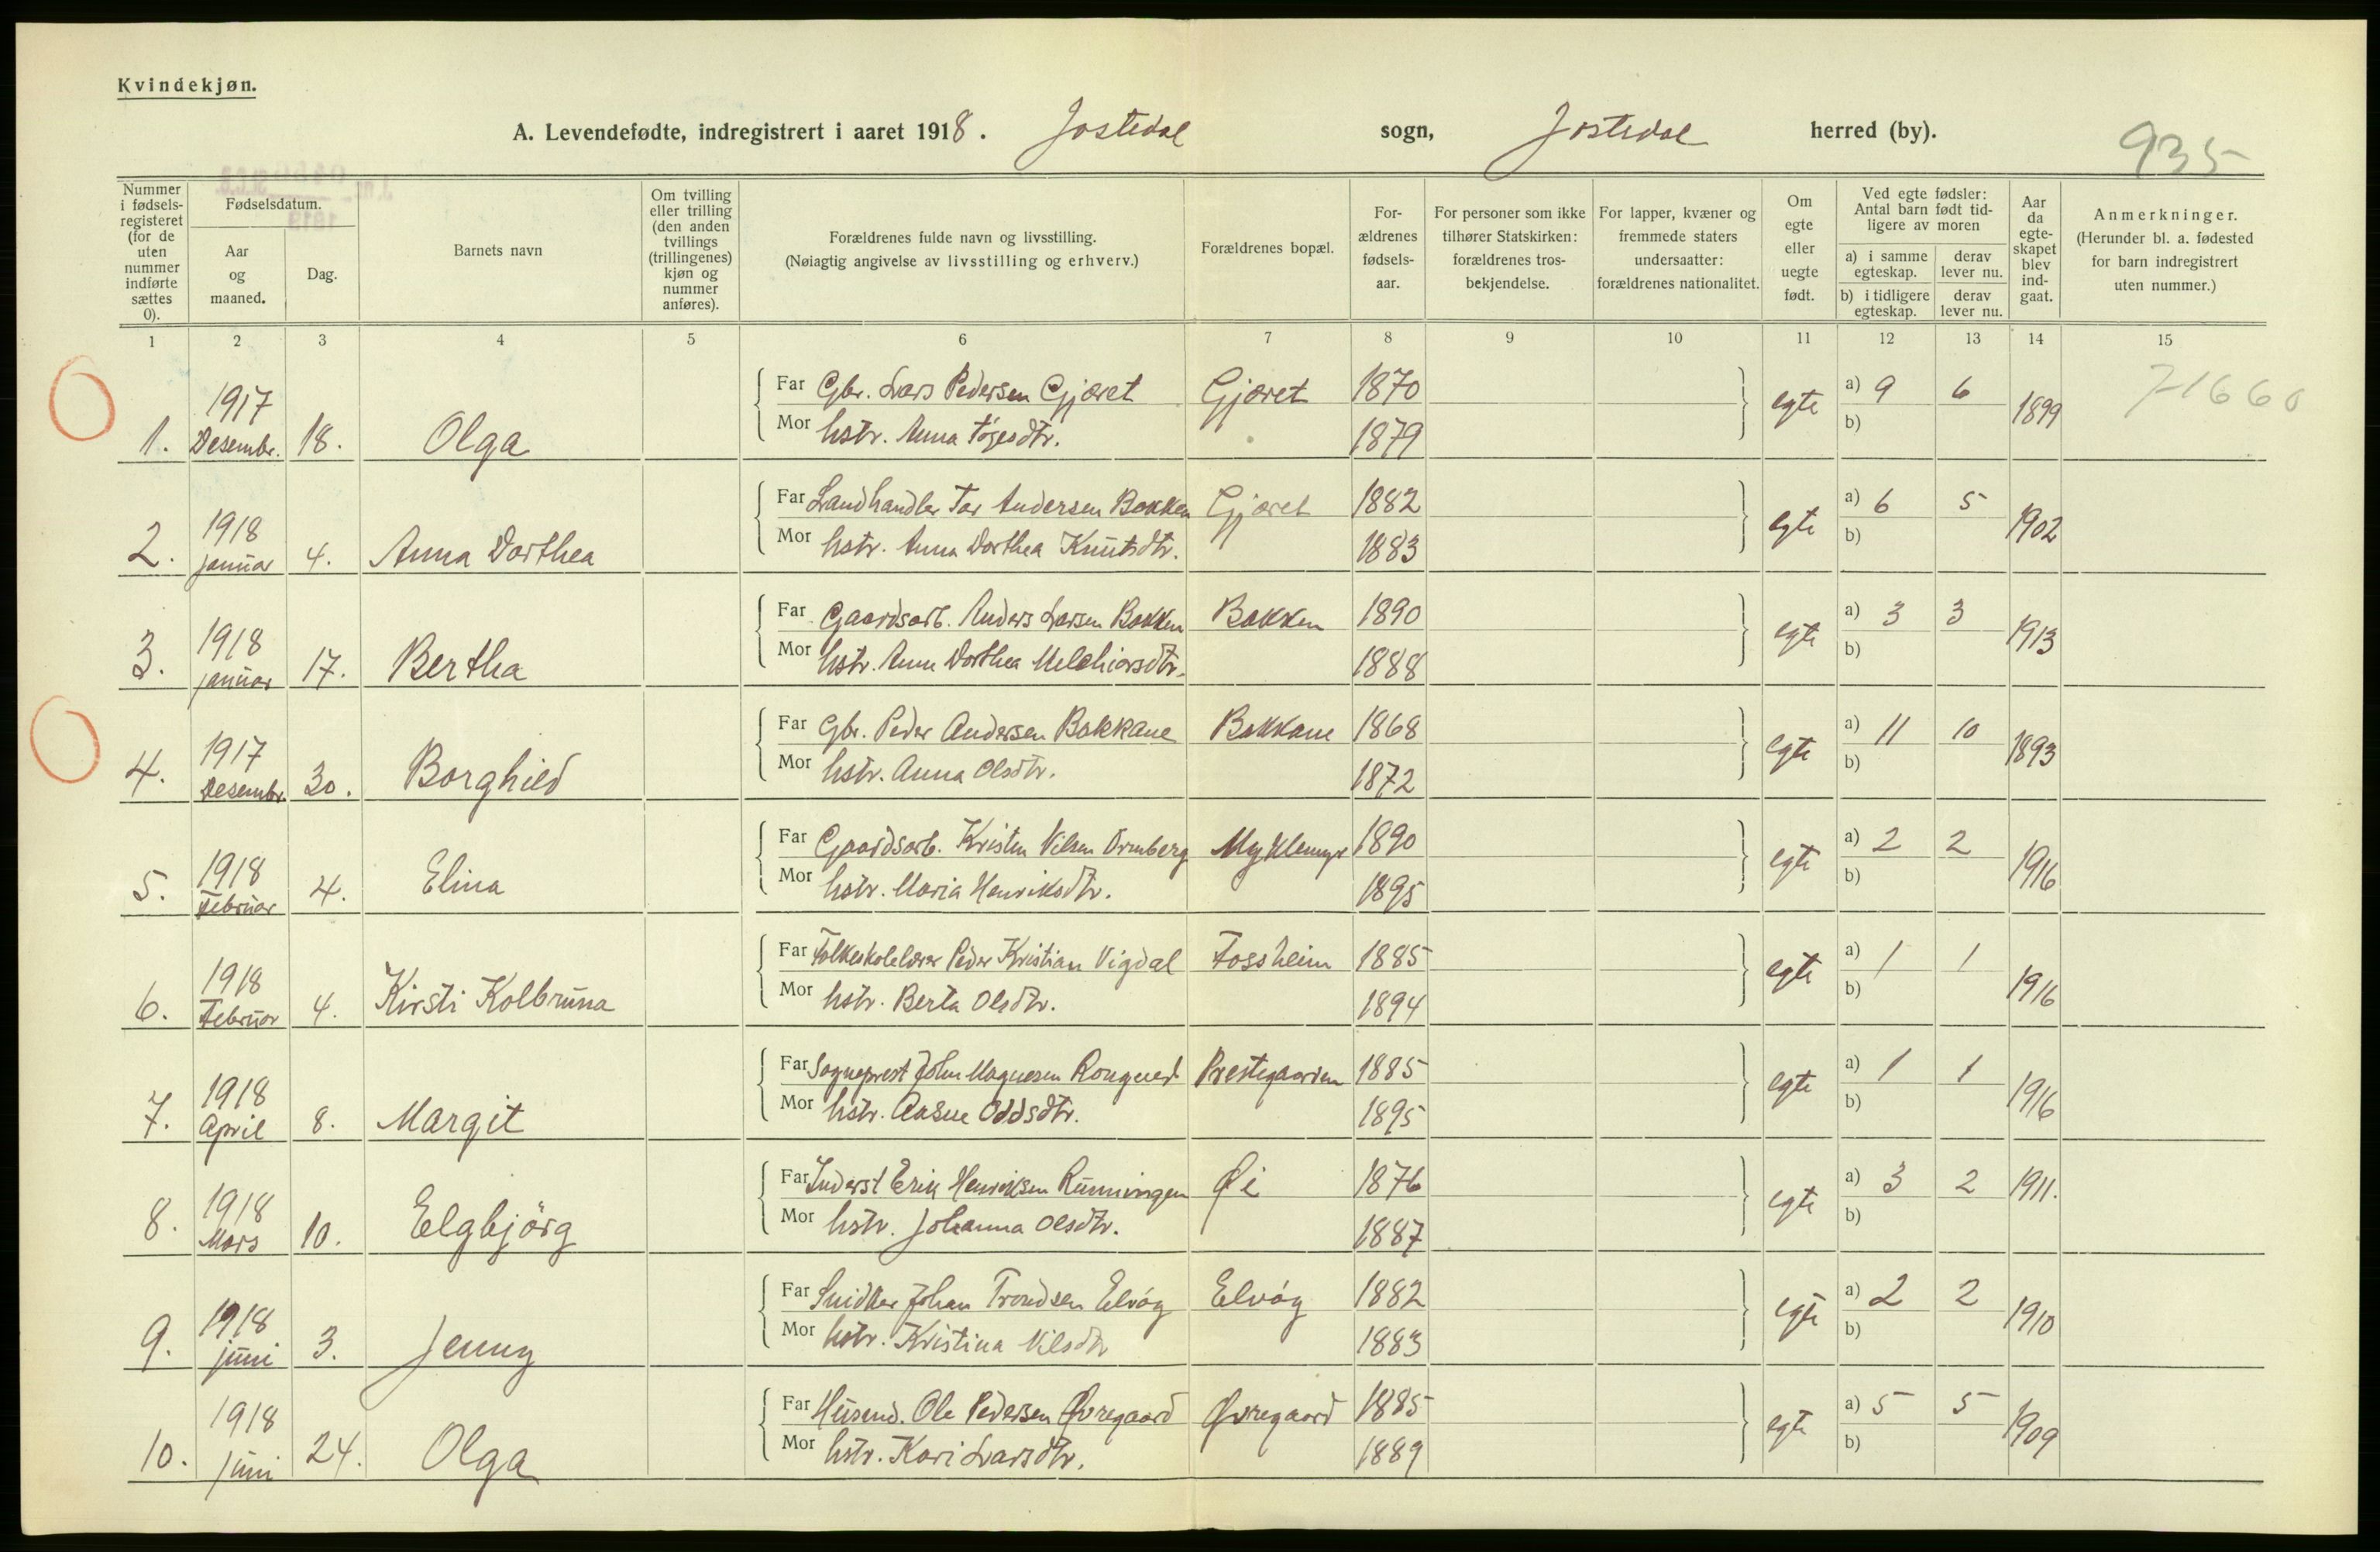 Kvindekjøn.
A. Levendefødte, indregistrert i aaret 1918. Jostedal sogn, Jostedal herred (by). 935
Nummer i fødsels-registeret (for de uten nummer indførte sættes 0).
Fødselsdatum.
Aar og maaned.
Dag.
Barnets navn
Om tvilling eller trilling (den anden tvillings (trillingenes) kjøn og nummer anføres).
Forældrenes fulde navn og livsstilling.
(Nøiagtig angivelse av livsstilling og erhverv.)
Forældrenes bopæl.
For-ældrenes fødsels-aar.
For personer som ikke tilhører Statskirken: forældrenes tros-bekjendelse.
For lapper, kvæner og fremmede staters undersaatter: forældrenes nationalitet.
Om egte eller uegte født.
Ved egte fødsler: Antal barn født tid-ligere av moren
a) i samme egteskap.
derav lever nu.
b) i tidligere egteskap.
derav lever nu.
Aar da egte-skapet blev ind-gaat.
Anmerkninger.
(Herunder bl. a. fødested for barn indregistrert uten nummer.)
1 2 3 4 5 6 7 8 9 10 11 12 13 14 15
1. 1917 Desembr. 18. Olga
Far Gbr. Lars Pedersen Gjæret Gjæret 1870 egte a) 9 6 1899
Mor hstr. Anna Tøgesdtr. 1879 b)
2. 1918 januar 4. Anna Dorthea
Far Landhandler Tor Andersen Bakken Gjæret 1882 egte a) 6 5 1902
Mor hstr. Anna Dorthea Knutsdtr. 1883 b)
3. 1918 januar 17. Bertha
Far Gaardsarb. Anders Larsen Bakken Bakken 1890 egte a) 3 3 1913
Mor hstr. Anna Dorthea Melchiorsdtr. 1888 b)
4. 1917 Desembr. 30. Borghild
Far Gbr. Peder Andersen Bakkane Bakkane 1868 egte a) 11 10 1893
Mor hstr. Anna Olsdtr. 1872 b)
5. 1918 Februar 4. Elina
Far Gaardsarb. Kristen Nilsen Ormberg Myklemyr 1890 egte a) 2 2 1916
Mor hstr. Maria Henriksdtr. 1895 b)
6. 1918 Februar 4. Kirsti Kolbruna
Far Folkeskolelærer Peder Kristian Vigdal Fossheim 1885 egte a) 1 1 1916
Mor hstr. Berta Olsdtr. 1894 b)
7. 1918 April 8. Margit
Far Sogneprest John Magnesen Rongved Prestegaarden 1885 egte a) 1 1 1916
Mor hstr. Aasne Oddsdtr. 1895 b)
8. 1918 Mars 10. Elgbjörg
Far Inderst Erik Henriksen Rünningen Øi 1876 egte a) 3 2 1911.
Mor hstr. Johanna Olsdtr. 1887 b)
9. 1918 juni 3. Jenny
Far Snidker Johan Trondsen Elvåg Elvåg 1882 egte a) 2 2 1910
Mor hstr. Kristina Nilsdtr 1883 b)
10. 1918 juni 24. Olga
Far Husmd. Ole Pedersen Øvregaard Øvregaard 1885 egte a) 5 5 1909
Mor hstr. Kari Larsdtr. 1889 b)